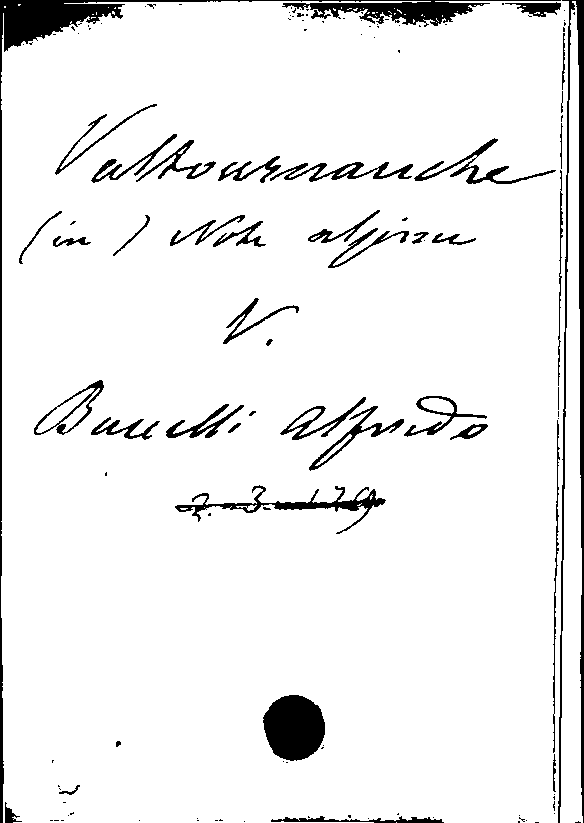 Valtournanche
(in) Note alpine
V.
Baccelli Alfredo
2. 3. 179